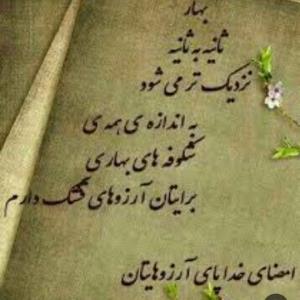 بهار
ثانیه به ثانیه
نزدیک تر می شود
به اندازه ی همه ی
شکوفه های بهاری
برایتان آرزوهای قشنگ دارم
امضای خدا پای آرزوهایتان